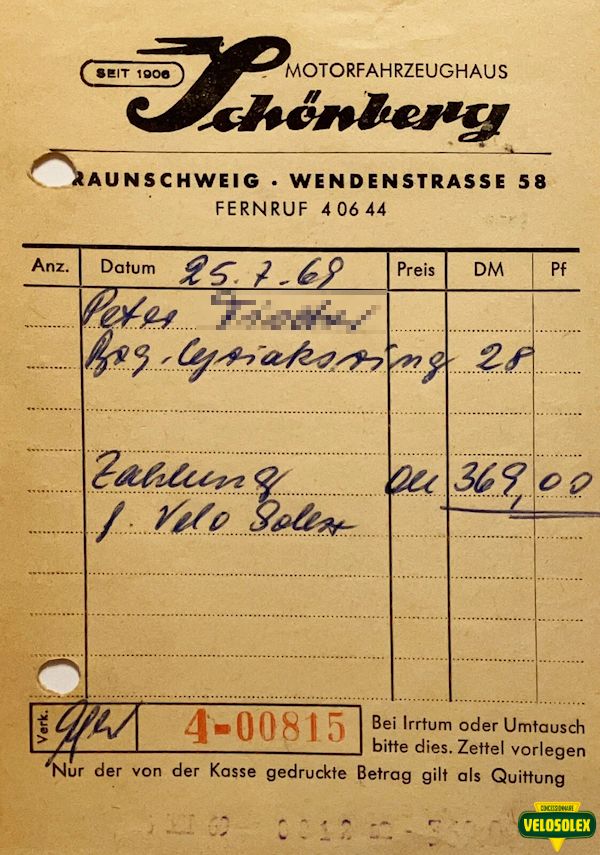 SEIT 1906
MOTORFAHRZEUGHAUS
Schönberg
RAUNSCHWEIG · WENDENSTRASSE 58
FERNRUF 4 06 44
Anz. Datum 25.7.69 Preis DM Pf
Peter
Bsg. Cyriaksring 28
Zahlung DM 369,00
f. Velo Solex
Verk. 4-00815
Bei Irrtum oder Umtausch
bitte dies. Zettel vorlegen
Nur der von der Kasse gedruckte Betrag gilt als Quittung
CONCESSIONNAIRE
VELOSOLEX